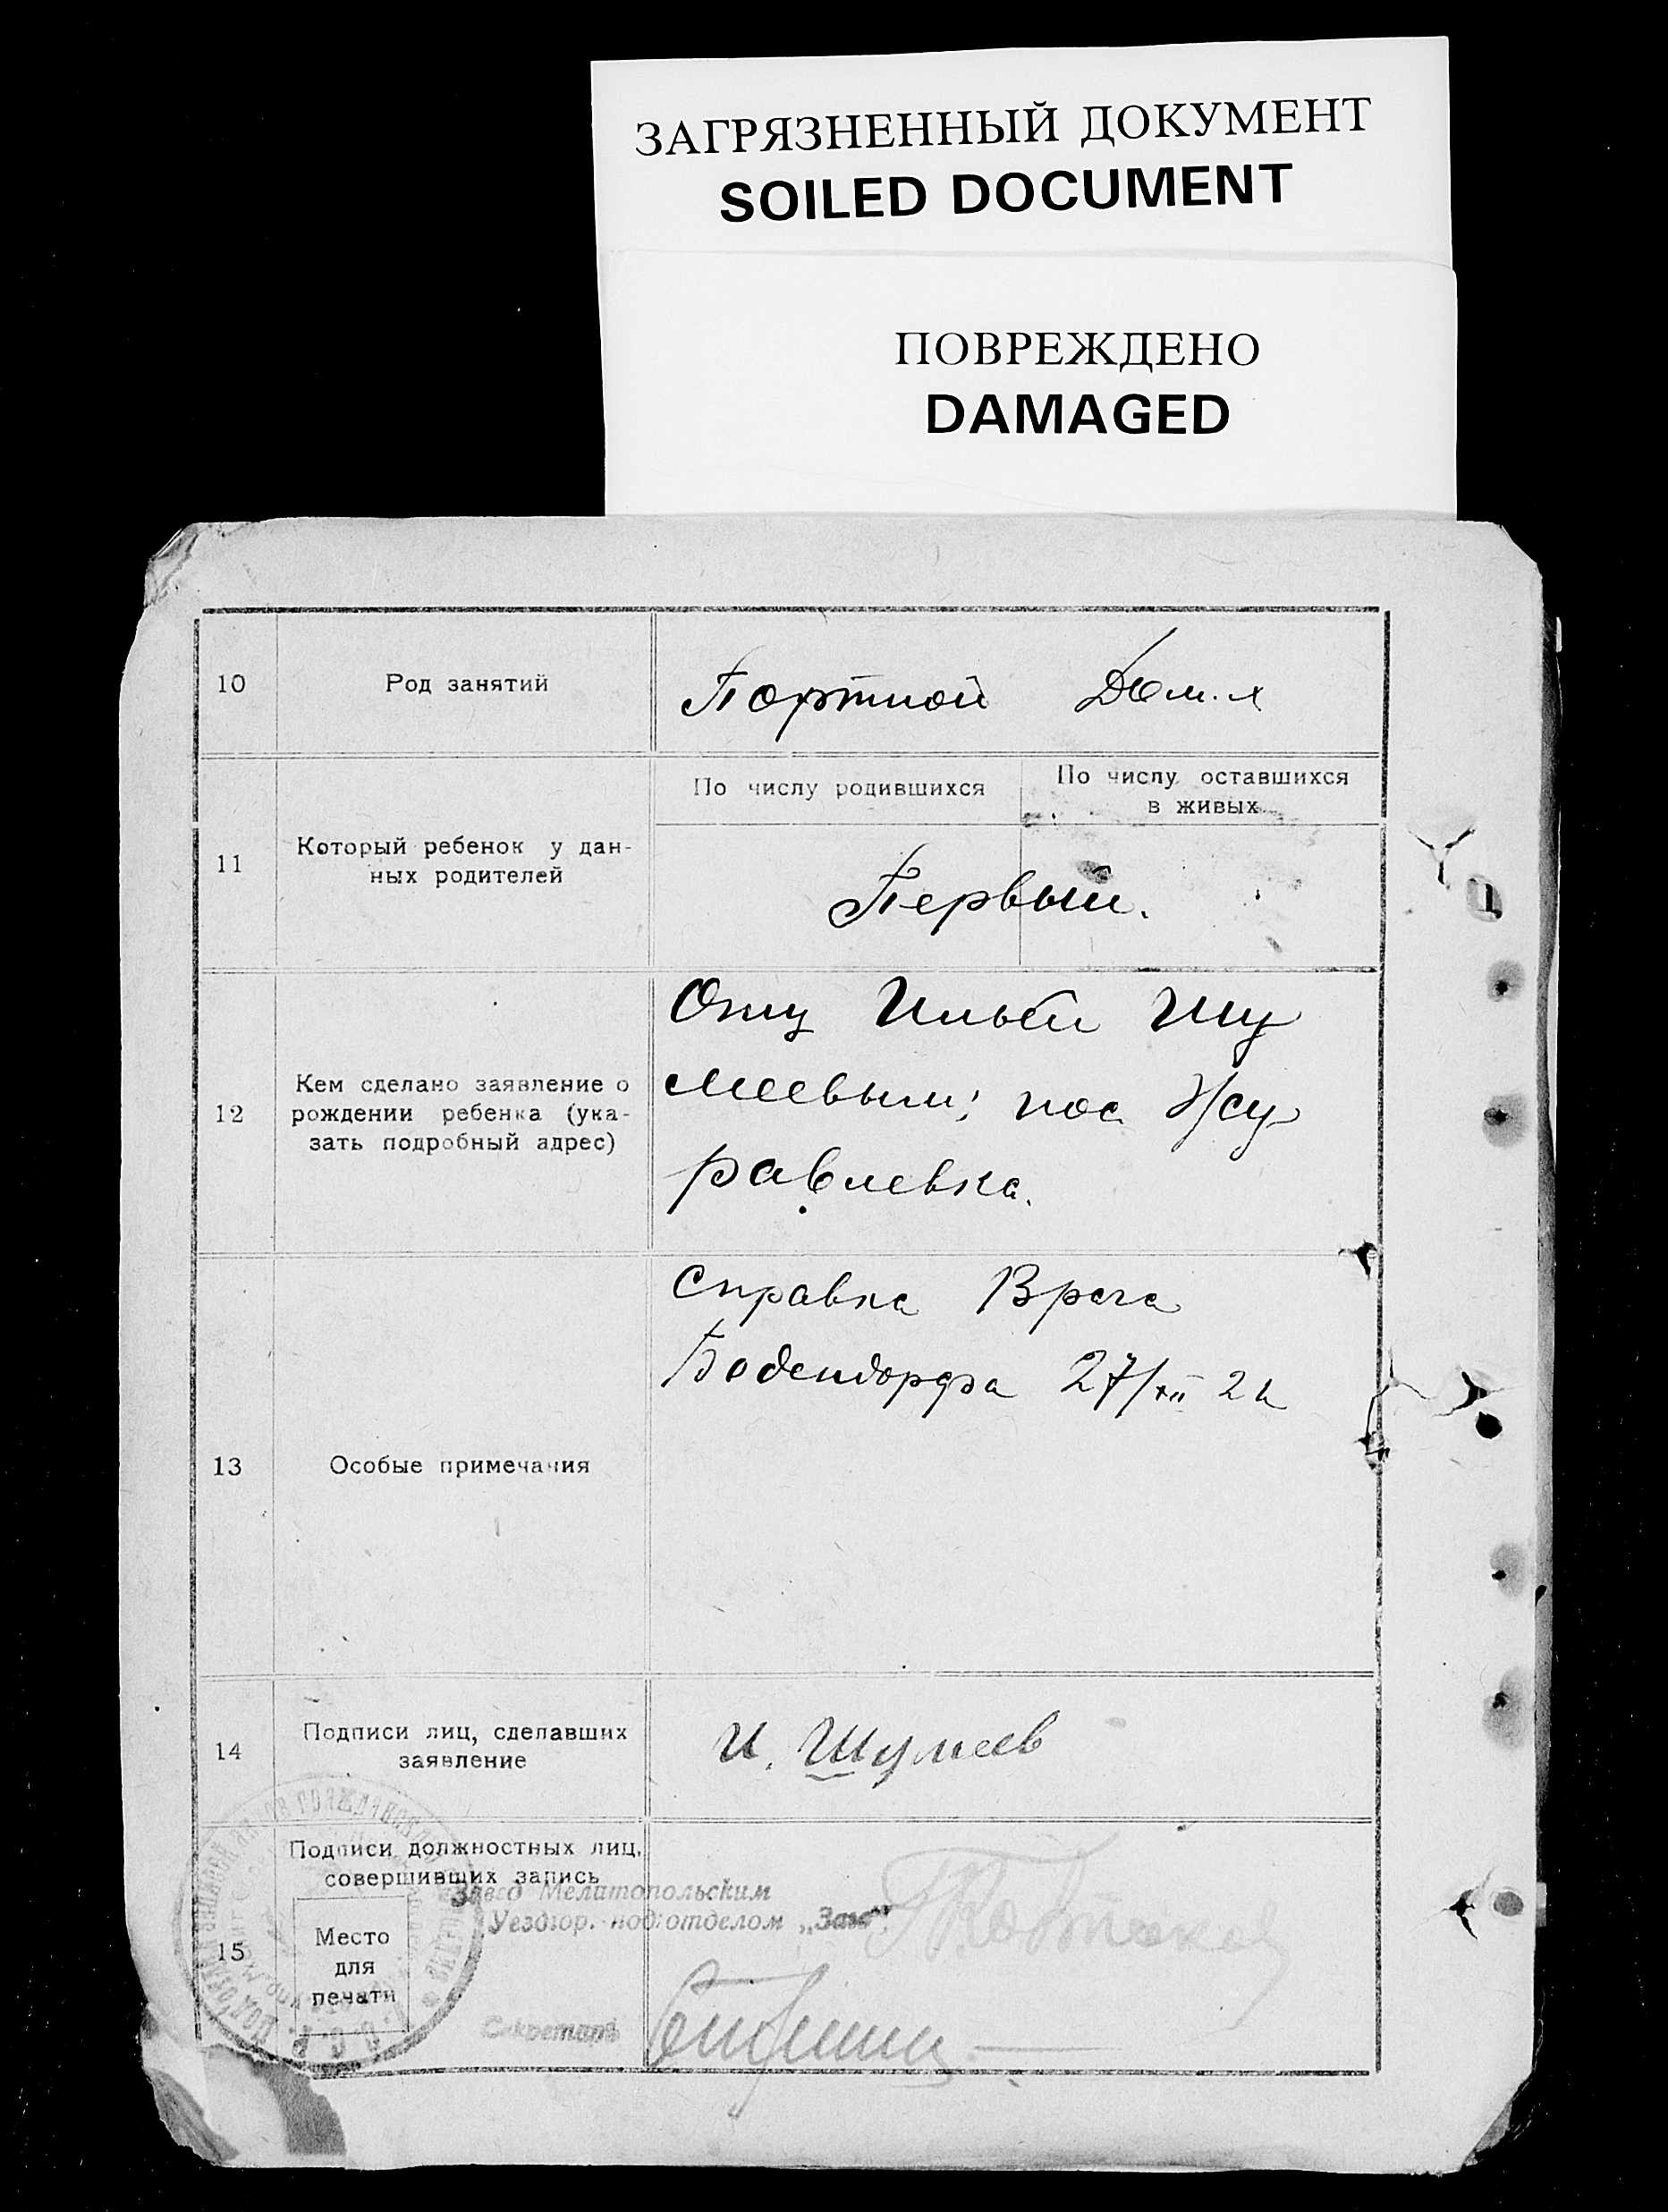 ЗАГРЯЗНЕННЫЙ ДОКУМЕНТ
SOILED DOCUMENT
ПОВРЕЖДЕНО
DAMAGED
10 Род занятий Портной Дом.х
По числу родившихся По числу оставшихся
в живых
11 Который ребенок у дан-
ных родителей
Первый.
Отцу Шу
12 Кем сделано заявление о
рождении ребенка (ука-
зать подробный адрес)
меевым; пос Жу
равлевка.
Справка Врача
Бодендорфа 27/XII
13 Особые примечания
14 Подписи лиц, сделавших
заявление
И. Шумеев
15 Подписи должностных лиц,
совершивших запись
Завед Мелитопольским
Уездгор. подотделом „Загс"
Место
для
печати
Секретарь